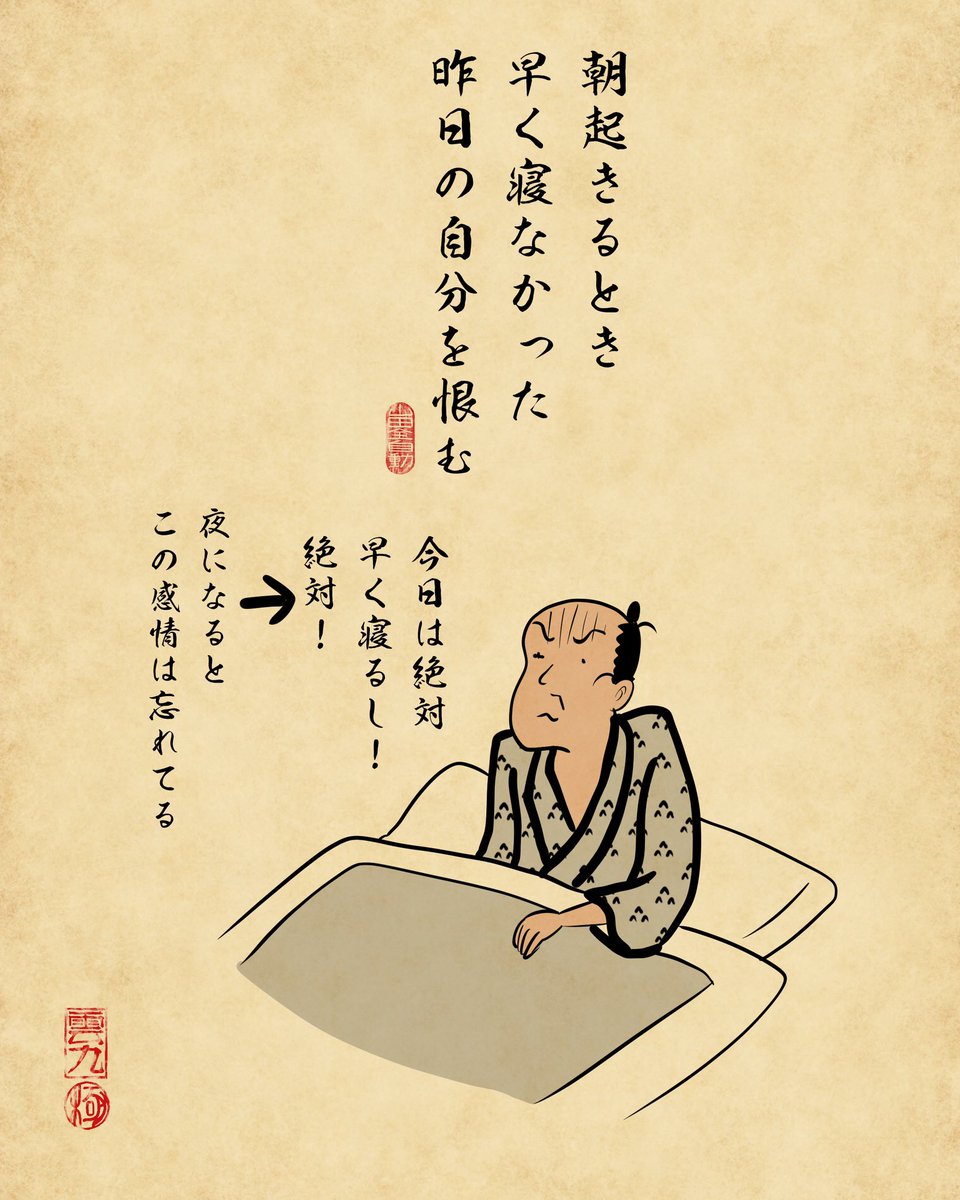 朝起きるとき
早く寝なかった
昨日の自分を恨む
今日は絶対
早く寝るし！
絶対！
夜になると
この感情は忘れてる